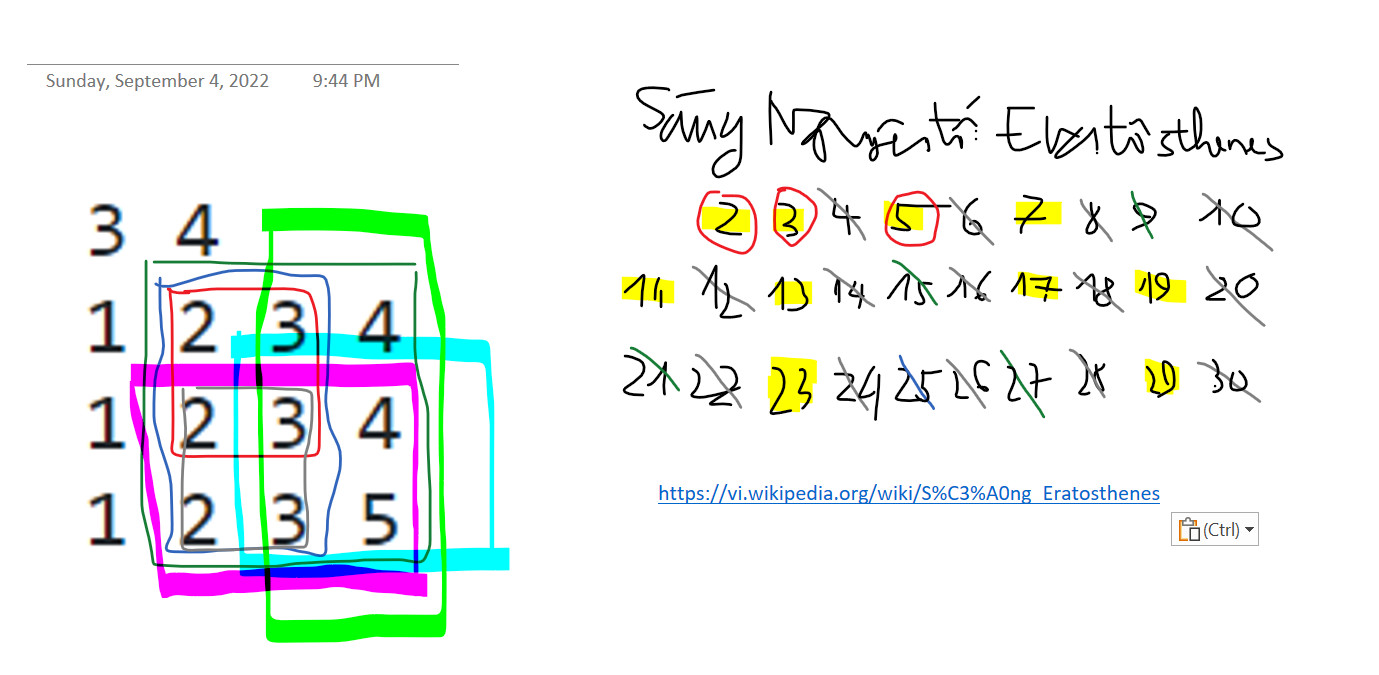 Sunday, September 4, 2022 9:44 PM
Sàng Nguyên tố Eratosthenes
3 4
1 2 3 4
1 2 3 4
1 2 3 5
2 3 4 5 6 7 8 9 10
11 12 13 14 15 16 17 18 19 20
21 22 23 24 25 26 27 28 29 30
https://vi.wikipedia.org/wiki/S%C3%A0ng_Eratosthenes
(Ctrl)